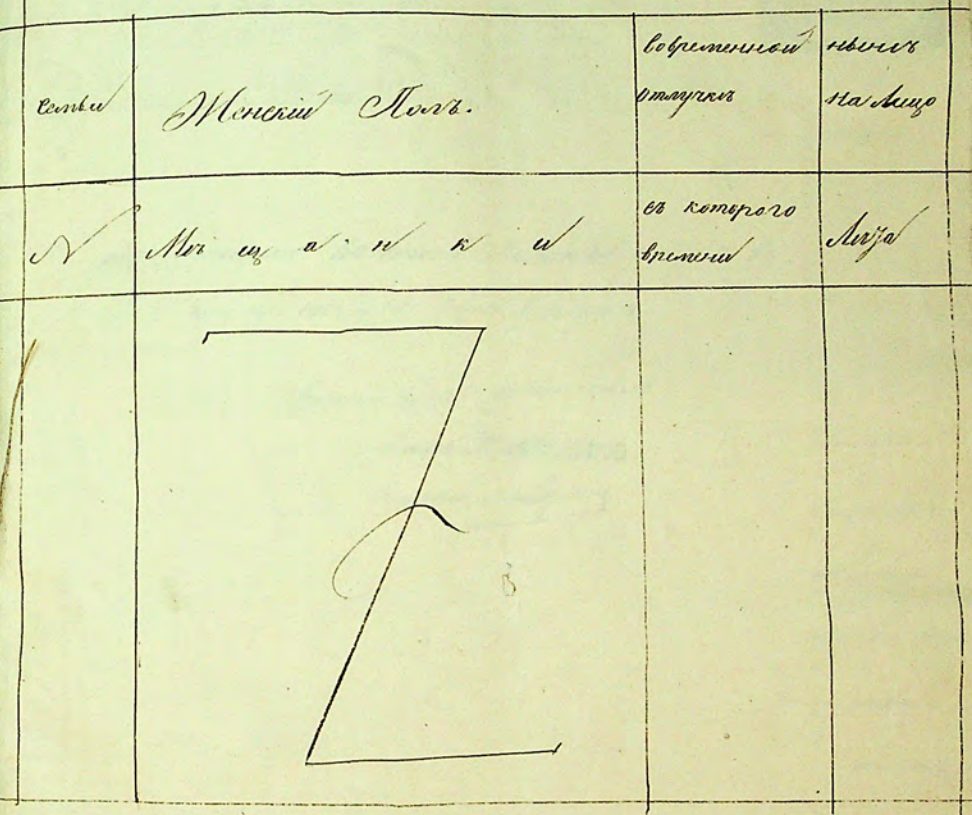 семьи
Женскій Полъ.
Вовременной
отлучкѣ
нынѣ
на Лицо
N
Мѣщанки
съ которого
времени
Лѣта